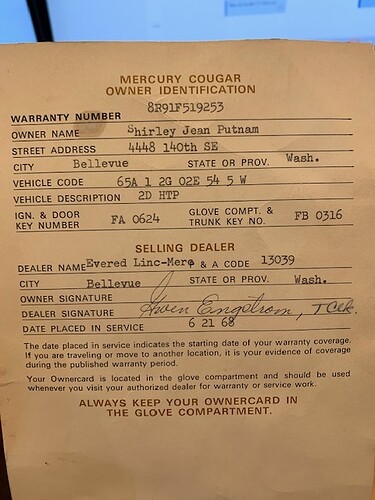 MERCURY COUGAR
OWNER IDENTIFICATION
WARRANTY NUMBER 8R91F519253
OWNER NAME Shirley Jean Putnam
STREET ADDRESS 4448 140th SE
CITY Bellevue STATE OR PROV. Wash.
VEHICLE CODE 65A 1 2G 02E 54 5 W
VEHICLE DESCRIPTION 2D HTP
IGN. & DOOR KEY NUMBER FA 0624 GLOVE COMPT. & TRUNK KEY NO. FB 0316
SELLING DEALER
DEALER NAME Evered Linc-Merc & A CODE 13039
CITY Bellevue STATE OR PROV. Wash.
OWNER SIGNATURE
DEALER SIGNATURE Gwen Engstrom, T Clk.
DATE PLACED IN SERVICE 6 21 68
The date placed in service indicates the starting date of your warranty coverage.
If you are traveling or move to another location, it is your evidence of coverage
during the published warranty period.
Your Ownercard is located in the glove compartment and should be used
whenever you visit your authorized dealer for warranty or service work.
ALWAYS KEEP YOUR OWNERCARD IN
THE GLOVE COMPARTMENT.